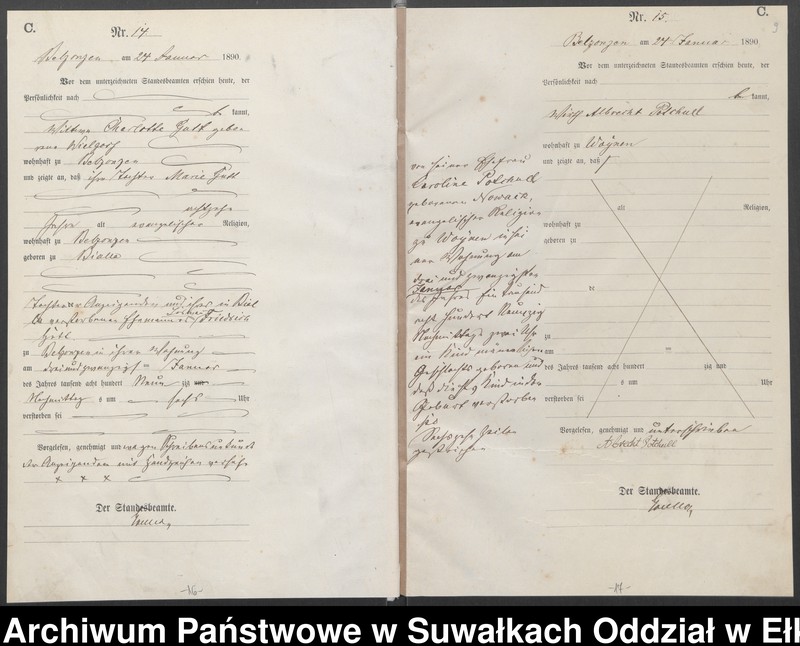 C.
Nr. 14
Belzonzen am 24 Januar 1890
Vor dem unterzeichneten Standesbeamten erschien heute, der
Persönlichkeit nach
b kannt,
Wittwe Charlotte gebo-
rene
wohnhaft zu Belzonzen
und zeigte an, daß ihre Tochter Marie
achtzehn
Jahre alt evangelischer Religion,
wohnhaft zu Belzonzen
geboren zu Bialla
Tochter der Anzeigenden und ihres in Bial
la verstorbenen Ehemannes Friedrich
zu Belzonzen in ihrer Wohnung
am drei und zwanzigsten Januar
des Jahres tausend acht hundert Neun zig
Nachmittag s um sechs Uhr
verstorben sei
Vorgelesen, genehmigt und wegen Schreibensunkunde
der Anzeigenden mit Handzeichen versehen
x x x
Der Standesbeamte.
-16-
C.
9
Nr. 15
Belzonzen am 24 Januar 1890
Vor dem unterzeichneten Standesbeamten erschien heute, der
Persönlichkeit nach
b kannt,
Wirth Albrecht Potschull
wohnhaft zu Woynen
und zeigte an, daß
von seiner Ehefrau
Caroline Potschull
geborenen Nowack,
evangelischer Religion
zu Woynen in sei
ner Wohnung am
drei und zwanzigsten
Januar
des Jahres Ein tausend
acht hundert Neunzig
Nachmittags zwei Uhr
ein Kind männlichen
Geschlechts geboren und
daß dieses Kind in der
Geburt verstorben
sei
Zeilen
gestrichen
alt Religion,
wohnhaft zu
geboren zu
de
zu
am
des Jahres tausend acht hundert zig
s um Uhr
verstorben sei
Vorgelesen, genehmigt und unterschrieben
Albrecht Potschull
Der Standesbeamte.
-17-
Archiwum Państwowe w Suwałkach Oddział w Eł